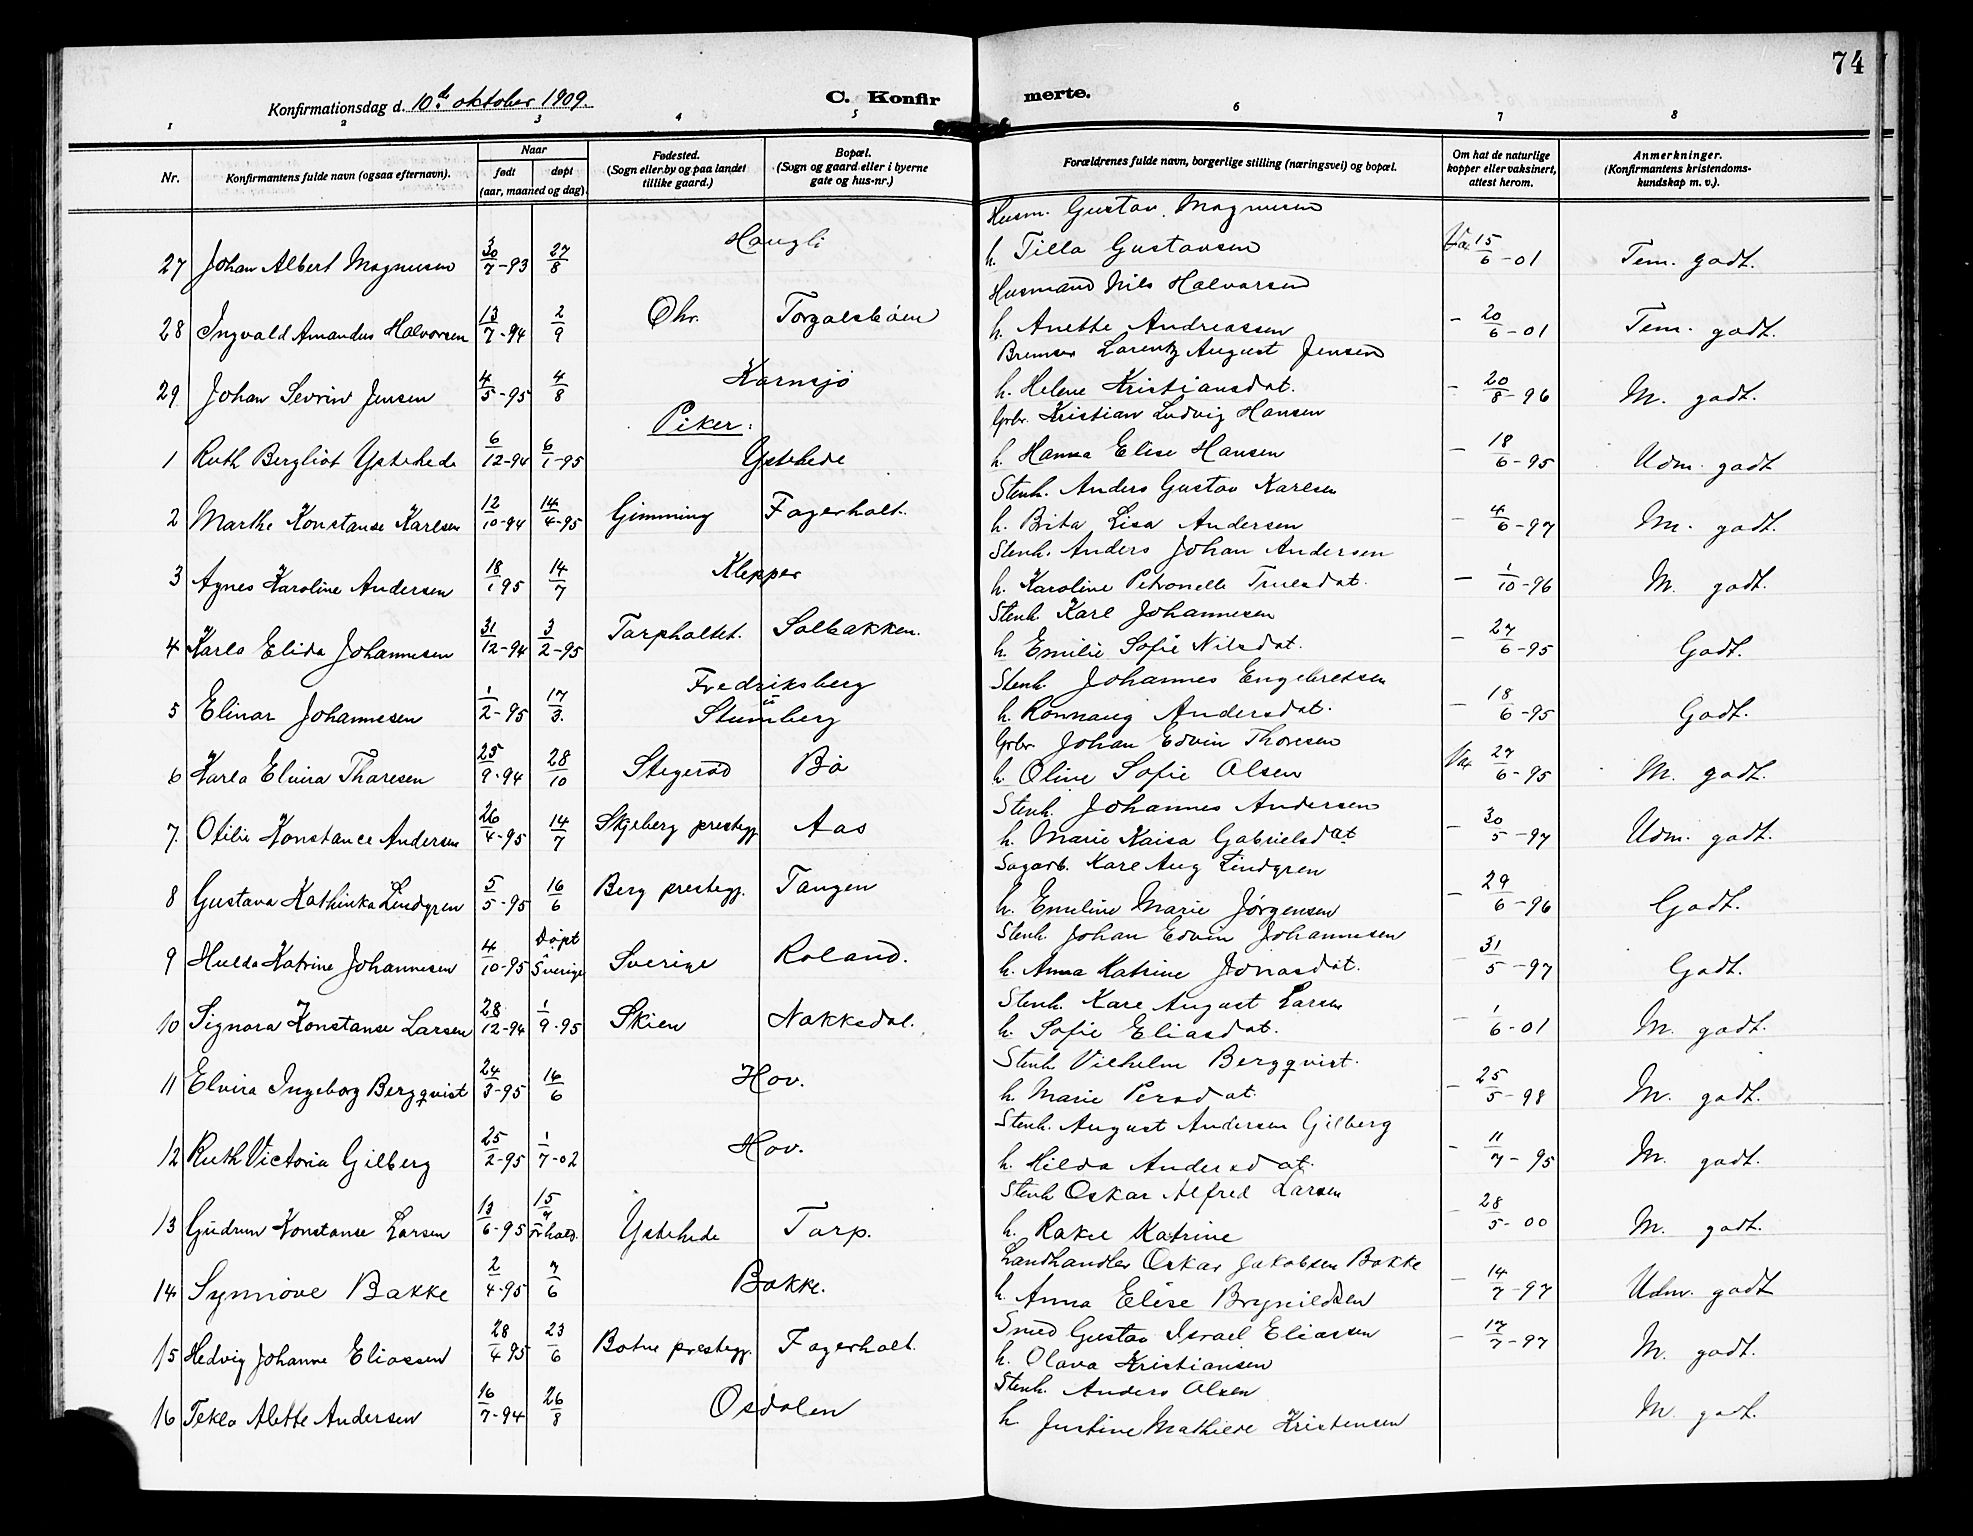 74
Konfirmationsdag d. 10de oktober 1909.
C. Konfirmerte.
1 2 3 4 5 6 7 8
Nr. Konfirmantens fulde navn (ogsaa efternavn). Naar født døpt (aar, maaned og dag). Fødested. (Sogn eller by og paa landet tillike gaard.) Bopæl. (Sogn og gaard eller i byerne gate og hus-nr.) Forældrenes fulde navn, borgerlige stilling (næringsvei) og bopæl. Om hat de naturlige kopper eller vaksinert, attest herom. Anmerkninger. (Konfirmantens kristendomskundskap m. v.).
Husm. Gustav Magnusen
27 Johan Albert Magnusen 30/7-93 27/8 Haugli h. Tilla Gustavsen Va 15/6-01 Tem. godt.
Husmand Nils Halvorsen
28 Ingvald Amandus Halvorsen 13/7-94 2/9 Ohr. Torgalsbøen h. Anette Andreassen - 20/6-01 Tem. godt.
Bremser Larentz August Jensen
29 Johan Sevrin Jensen 4/5-95 4/8 Kornsjø h. Helene Kristiansdat. - 20/8-96 M. godt.
Piker:
Grbr. Kristian Ludvig Hansen
1 Ruth Bergliot Ystehede 6/12-94 6/1-95 Ystehede h. Hanna Elise Hansen - 18/6-95 Udm. godt
Stenh. Anders Gustav Karlsen
2 Marthe Konstanse Karlsen 12/10-94 14/4-95 Gimming Fagerholt. h. Brita Lisa Andersen - 4/6-97 M. godt.
Stenh. Anders Johan Andersen
3 Agnes Karoline Andersen 18/1 95 14/7 Klepper h. Karoline Petronelle Truelsdat. - 1/10-96 M. godt.
Stenh. Karl Johannesen
4 Karla Elida Johannesen 31/12-94 3/2-95 Torpholtet. Solbakken. h. Emilie Sofie Nilsdat. - 27/6-95 Godt.
Stenh. Johannes Engebretsen
5 Elinar Johannesen 1/2-95 17/3. Fredriksberg i Stumberg h. Ronnaug Andersdat. - 18/6-95 Godt.
Grbr. Johan Edvin Thoresen
6 Karla Elvira Thoresen 25/9-94 28/10 Stegerød Bø h. Oline Sofie Olsen Va 27/6-95 M. godt.
Stenh. Johannes Andersen
7. Otilie Konstance Andersen 26/4-95 14/7 Skjeberg prestegj. Aas h. Marie Kaisa Gabrielsdat - 30/5-97 Udm. godt.
Sagarb. Karl Aug Lindgren
8 Gustava Kathinka Lindgren 5/5-95 16/6 Berg prestegj. Tangen h. Emeline Marie Jørgensen - 29/6-96 Godt.
Stenh. Johan Edvin Johannesen
9 Hulda Katrine Johannesen 4/10-95 Døpt i Sverige Sverige Roland. h. Anna Katrine Jonasdat. - 31/5-97 Godt.
Stenh. Karl August Larsen
10 Signora Konstanse Larsen 28/12-94 1/9-95 Skien Nokksdal. h. Sofie Eliasdat. - 1/6-01 M. godt.
Stenh Vilhelm Bergqvist.
11 Elvira Ingeborg Bergqvist 24/3-95 16/6 Hov. h. Marie Persdat. - 25/5-98 M. godt.
Stenh. August Andersen Gilberg
12 Ruth Victoria Gilberg 25/2-95 1/7-02 Hov. h. Hilda Andersdat. - 11/7-95 M. godt.
Stenh Oskar Alfred Larsen
13 Gudrun Konstanse Larsen 13/6-95 15/7 Frhald. Ystehede Torp. h. Rakel Katrine - 28/5-00 M. godt.
Landhandler Oskar Jakobsen Bakke
14 Synnöve Bakke 2/4-95 7/6 Bakke. h. Anna Elise Brynildsen - 14/7-97 Udm. godt
Smed Gustav Israel Eliassen
15 Hedvig Johanne Eliassen 28/4 95 23/6 Botne prestegj. Fagerholt. h. Olava Kristiansen - 17/7-97 M. godt.
Stenh. Anders Olsen
16 Tekla Alette Andersen 16/7-94 26/8 Osdalen h. Justine Mathilde Kristensen M. godt.